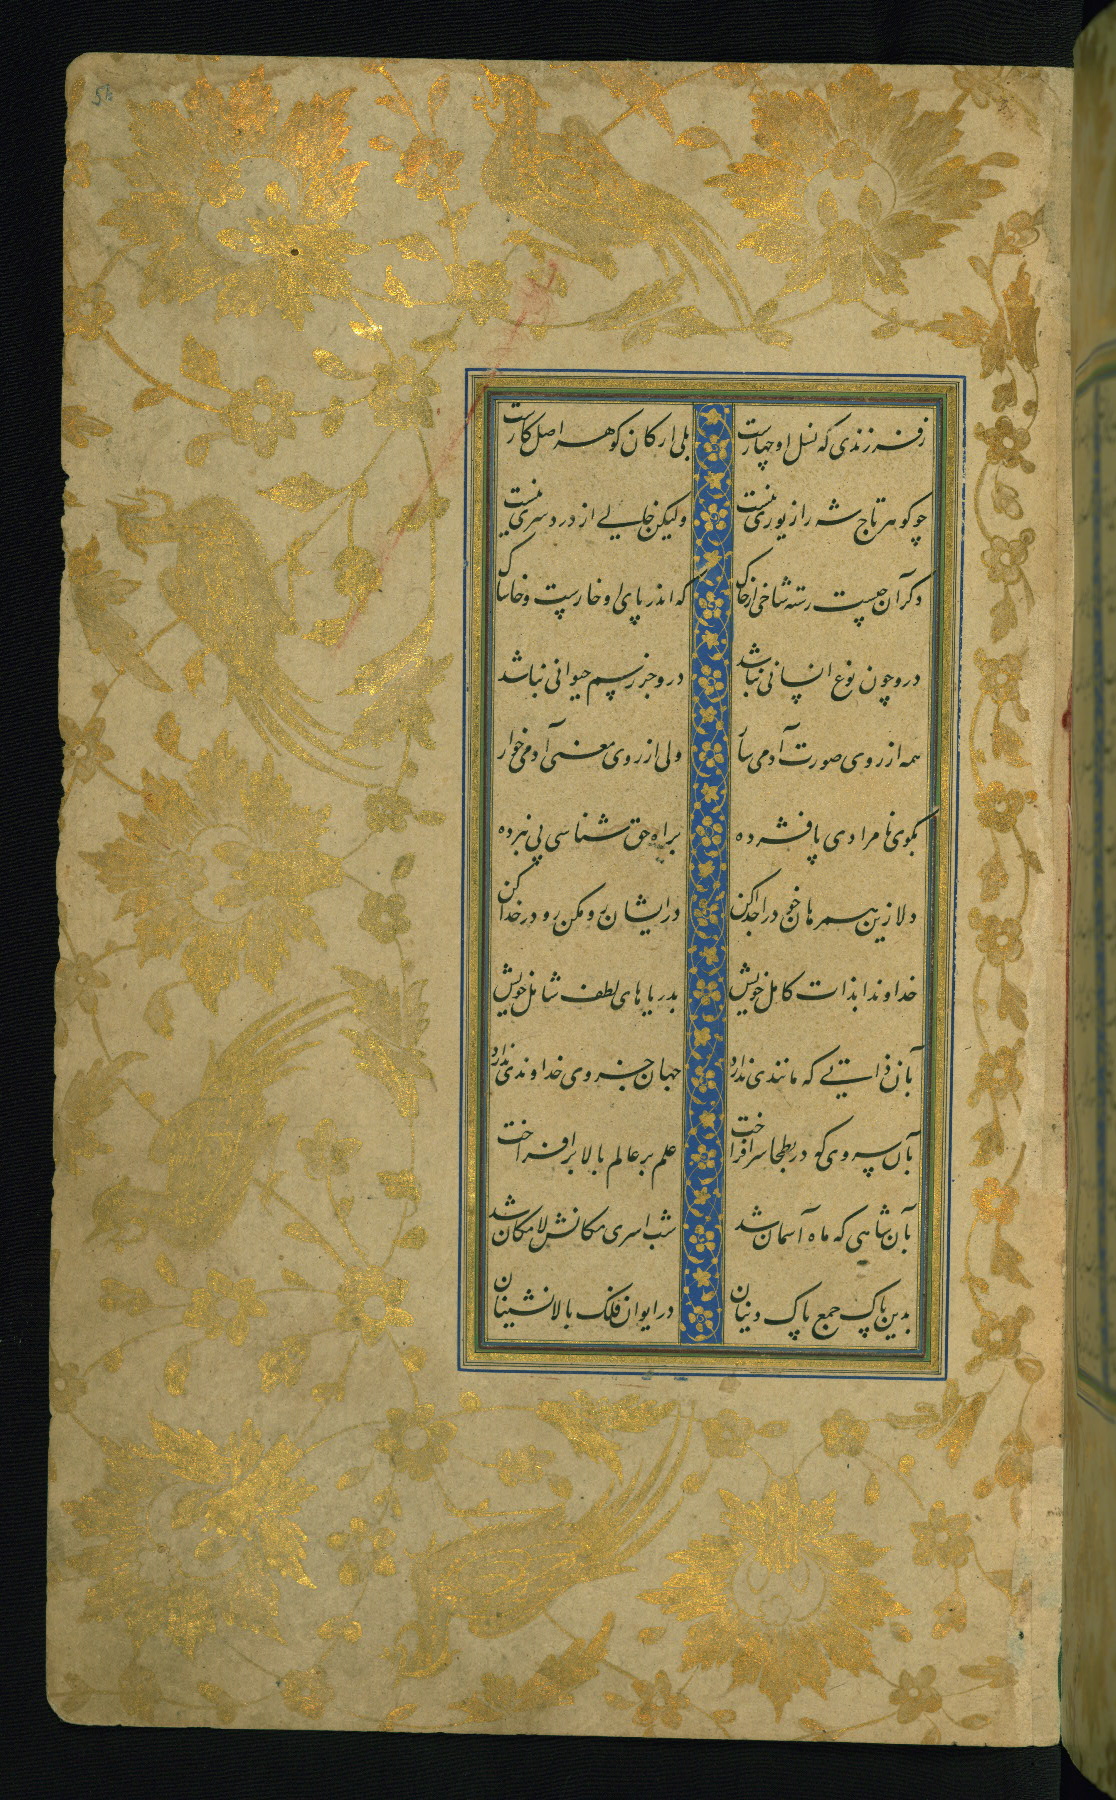 ز فرزندی که نسل او چهارست بلی ارکان گوهر اصل کارست
چو گوهر تاج شه را زیوری نیست ولیکن خالی از دردسری نیست
وگر آن چیست رسته شاخی از خاک که اندر پای او خارست و خاشاک
درو چون نوع انسانی نباشد درو جز رسم حیوانی نباشد
همه از روی صورت آدمی سار ولی از روی معنی آدمی خوار
بکوی نامرادی پا فشرده براه حق شناسی پی نبرده
دلا زین همرهان خود را جدا کن در ایشان رو مکن رو در خدا کن
خداوندا بذات کامل خویش بدریاهای لطف شامل خویش
بآن ذاتی که مانندی ندارد جهان جز وی خداوندی ندارد
بآن سروی کو در بطحا سرافراخت علم بر عالم بالا برافراخت
بآن شاهی که ماه آسمان شد شب اسری مکانش لامکان شد
بدین پاک جمع پاک دینان در ایوان فلک بالانشینان